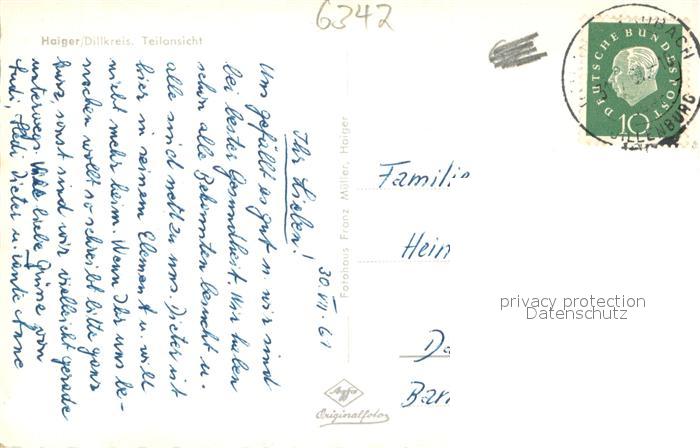 6342
Haiger/Dillkreis. Teilansicht
30. VII. 61
Ihr Lieben!
Uns gefällt es gut u. wir sind
bei bester Gesundheit. Wir haben
schon alle Bekannten besucht u.
alle sind nett zu uns. Dieter ist
hier in seinem Element u. will
nicht mehr heim. Wenn Ihr uns be-
suchen wollt so schreibt bitte ganz
kurz, sonst sind wir vielleicht gerade
unterwegs. Viele liebe Grüsse von
Rudi, Hedi Dieter u. Tante Anne
Fotohaus Franz Müller, Haiger
Agfa
Originalfoto
DEUTSCHE BUNDESPOST
10
DILLENBURG
Famili
Hein
Da
Bar
privacy protection
Datenschutz